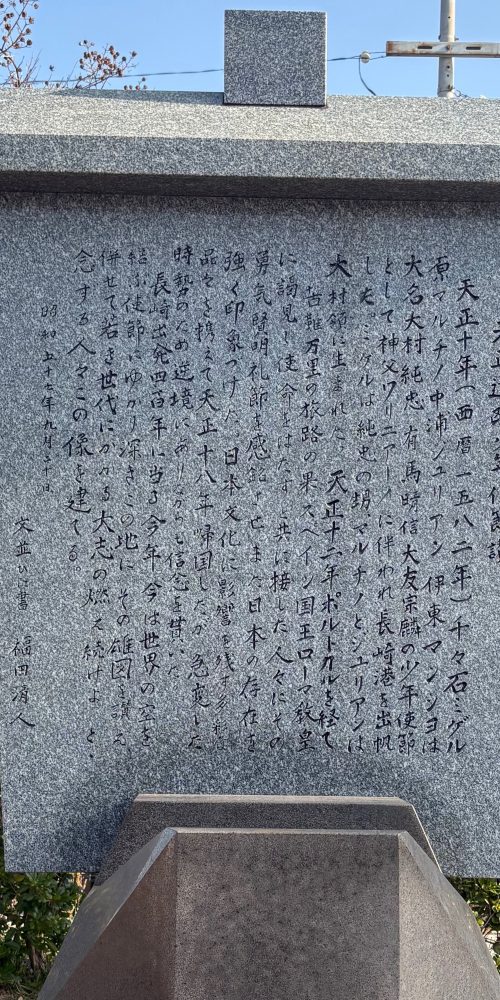 天正十年(西暦一五八二年)千々石ミゲル
原マルチノ 中浦ジュリアン 伊東マンショは
大名大村純忠 有馬晴信 大友宗麟の少年使節
として神父ワリニアーノに伴われ長崎港を出帆
した。ミゲルは純忠の甥 マルチノとジュリアンは
大村領に生まれた 天正十二年ポルトガルを経て
苦難万里の旅路の果 スペイン国王ローマ教皇
に謁見し使命をはたすと共に接した人々にその
勇気賢明礼節を感銘させ また日本の存在を
強く印象つけた。日本文化に影響を残す多種
品々を携えて天正十八年帰国したが 急変した
時勢のため逆境にありながらも信念を貫いた
長崎出発四百年に当る今年 今は世界の空を
結ぶ使節にゆかり深きこの地に その雄図を讃え
併せて若き世代にかかる大志の燃え続けよ と、
念する人々この像を建てる。
昭和五十七年九月二十日
文並びに書 福田清人